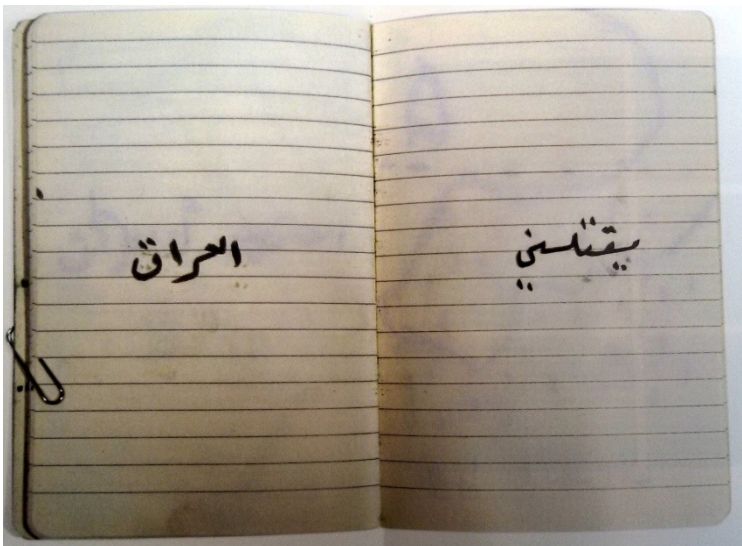 يقتلني
العراق